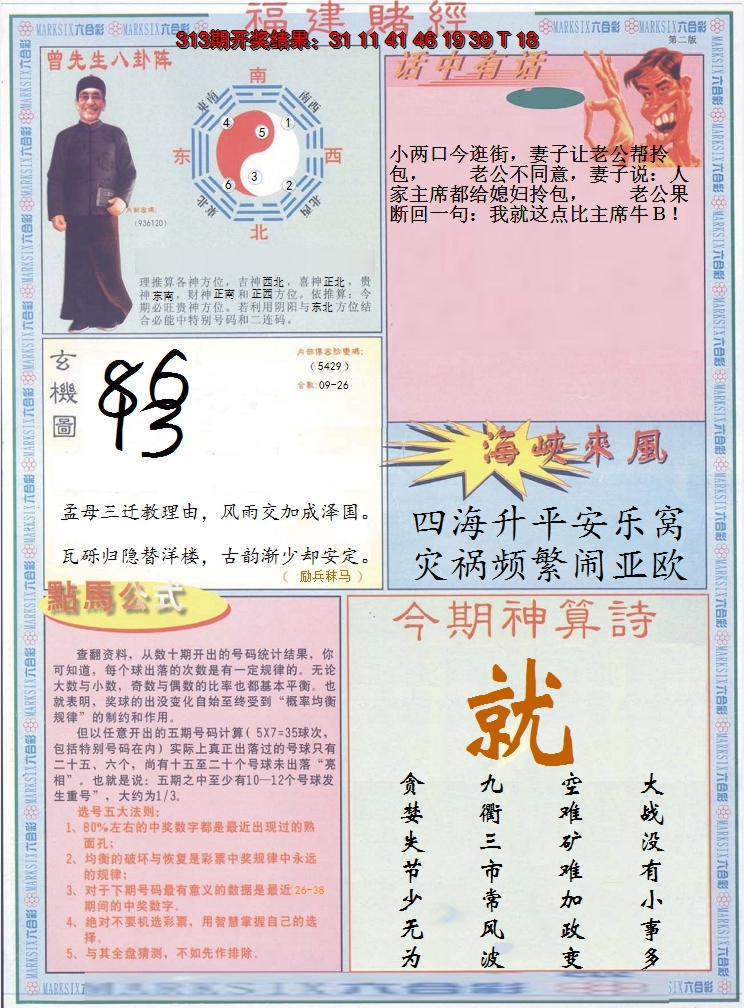 福建賭經
MARKSIX六合彩
313期开奖结果：31 11 41 46 19 39 T 18
第二版
曾先生八卦阵
南
東南
南西
4
5
1
东
西
6
3
2
東北
北西
北
內部密碼:
(936120)
理推算各神方位，吉神西北，喜神正北，贵
神东南，财神正南和正西方位。依推算：今
期必旺贵神方位。若利用阴阳与东北方位结
合必能中特别号码和二连码。
话中有话
小两口今逛街，妻子让老公帮拎
包， 老公不同意，妻子说：人
家主席都给媳妇拎包， 老公果
断回一句：我就这点比主席牛B！
玄機圖
內部傳密防僞碼:
(5429)
合数:09-26
孟母三迁教理由，风雨交加成泽国。
瓦砾归隐替洋楼，古韵渐少却安定。
（ 励兵秣马 ）
海峽來風
四海升平安乐窝
灾祸频繁闹亚欧
點馬公式
查翻资料，从数十期开出的号码统计结果，你
可知道，每个球出落的次数是有一定规律的。无论
大数与小数，奇数与偶数的比率也都基本平衡。也
就表明，奖球的出没变化自始至终受到“概率均衡
规律”的制约和作用。
但以任意开出的五期号码计算(5X7=35球次，
包括特别号码在内)实际上真正出落过的号球只有
二十五、六个，尚有十五至二十个号球未出落“亮
相”。也就是说：五期之中至少有10—12个号球发
生重号”，大约为1/3。
选号五大法则：
1、80%左右的中奖数字都是最近出现过的熟
面孔；
2、均衡的破坏与恢复是彩票中奖规律中永远
的规律；
3、对于下期号码最有意义的数据是最近26-38
期间的中奖数字。
4、绝对不要机选彩票，用智慧掌握自己的选
择。
5、与其全盘猜测，不如先作排除。
今期神算詩
就
大战没有小事多
空难矿难加政变
九衢三市常风波
贪婪失节少无为